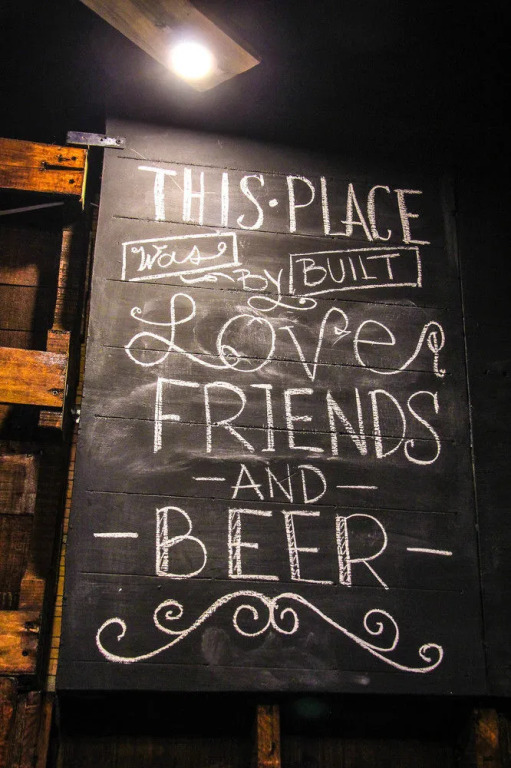 THIS·PLACE
Was BY BUILT
Love
FRIENDS
-AND-
-BEER-